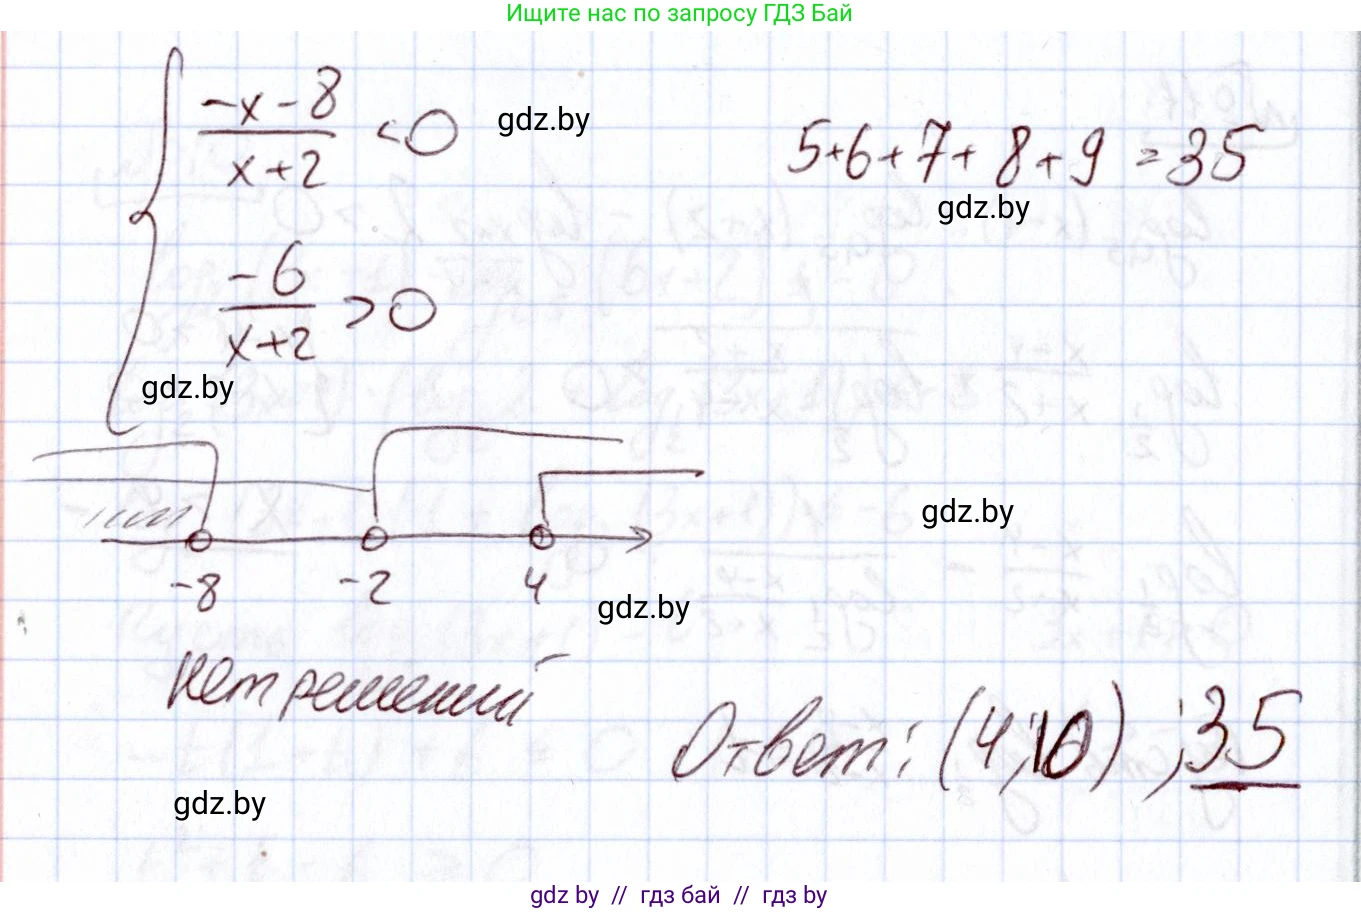 Ищите нас по запросу ГДЗ Бай
-x-8 / x+2 < 0
gdz.by
5+6+7+8+9 = 35
gdz.by
-6 / x+2 > 0
gdz.by
gdz.by
-8 -2 4
gdz.by
нет решений
Ответ: (4;10); 35
gdz.by
gdz by // гдз бай // гдз by